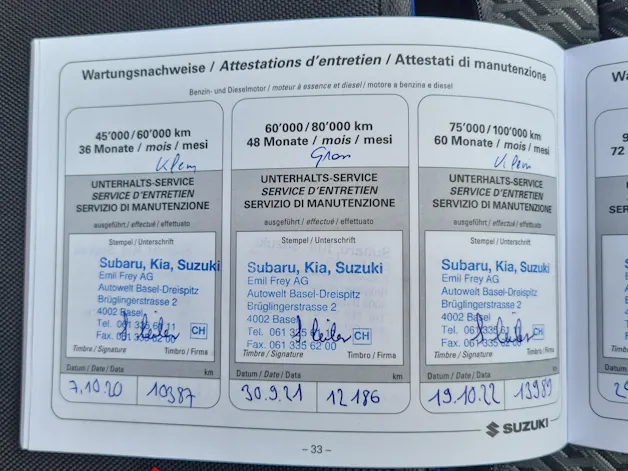 Wartungsnachweise / Attestations d'entretien / Attestati di manutenzione
Benzin- und Dieselmotor / moteur à essence et diesel / motore a benzina e diesel
45'000/60'000 km
36 Monate / mois / mesi
Klein
UNTERHALTS-SERVICE
SERVICE D'ENTRETIEN
SERVIZIO DI MANUTENZIONE
ausgeführt / effectué / effettuato
Stempel / Unterschrift
Subaru, Kia, Suzuki
Emil Frey AG
Autowelt Basel-Dreispitz
Brüglingerstrasse 2
4002 Basel
Tel. 061 335 61 11
Fax. 061 335 62 00
CH
Timbre / Signature
Timbro / Firma
Datum / Date / Data
km
7.10.20
10387
60'000/80'000 km
48 Monate / mois / mesi
Gross
UNTERHALTS-SERVICE
SERVICE D'ENTRETIEN
SERVIZIO DI MANUTENZIONE
ausgeführt / effectué / effettuato
Stempel / Unterschrift
Subaru, Kia, Suzuki
Emil Frey AG
Autowelt Basel-Dreispitz
Brüglingerstrasse 2
4002 Basel
Tel. 061 335
Fax. 061 335 62 00
CH
Timbre / Signature
Timbro / Firma
Datum / Date / Data
km
30.9.21
12186
75'000/100'000 km
60 Monate / mois / mesi
Klein
UNTERHALTS-SERVICE
SERVICE D'ENTRETIEN
SERVIZIO DI MANUTENZIONE
ausgeführt / effectué / effettuato
Stempel / Unterschrift
Subaru, Kia, Suzuki
Emil Frey AG
Autowelt Basel-Dreispitz
Brüglingerstrasse 2
4002 Basel
Tel. 061 335 61
Fax. 061 335 62 00
CH
Timbre / Signature
Timbro / Firma
Datum / Date / Data
km
19.10.22
13989
SUZUKI
– 33 –
72